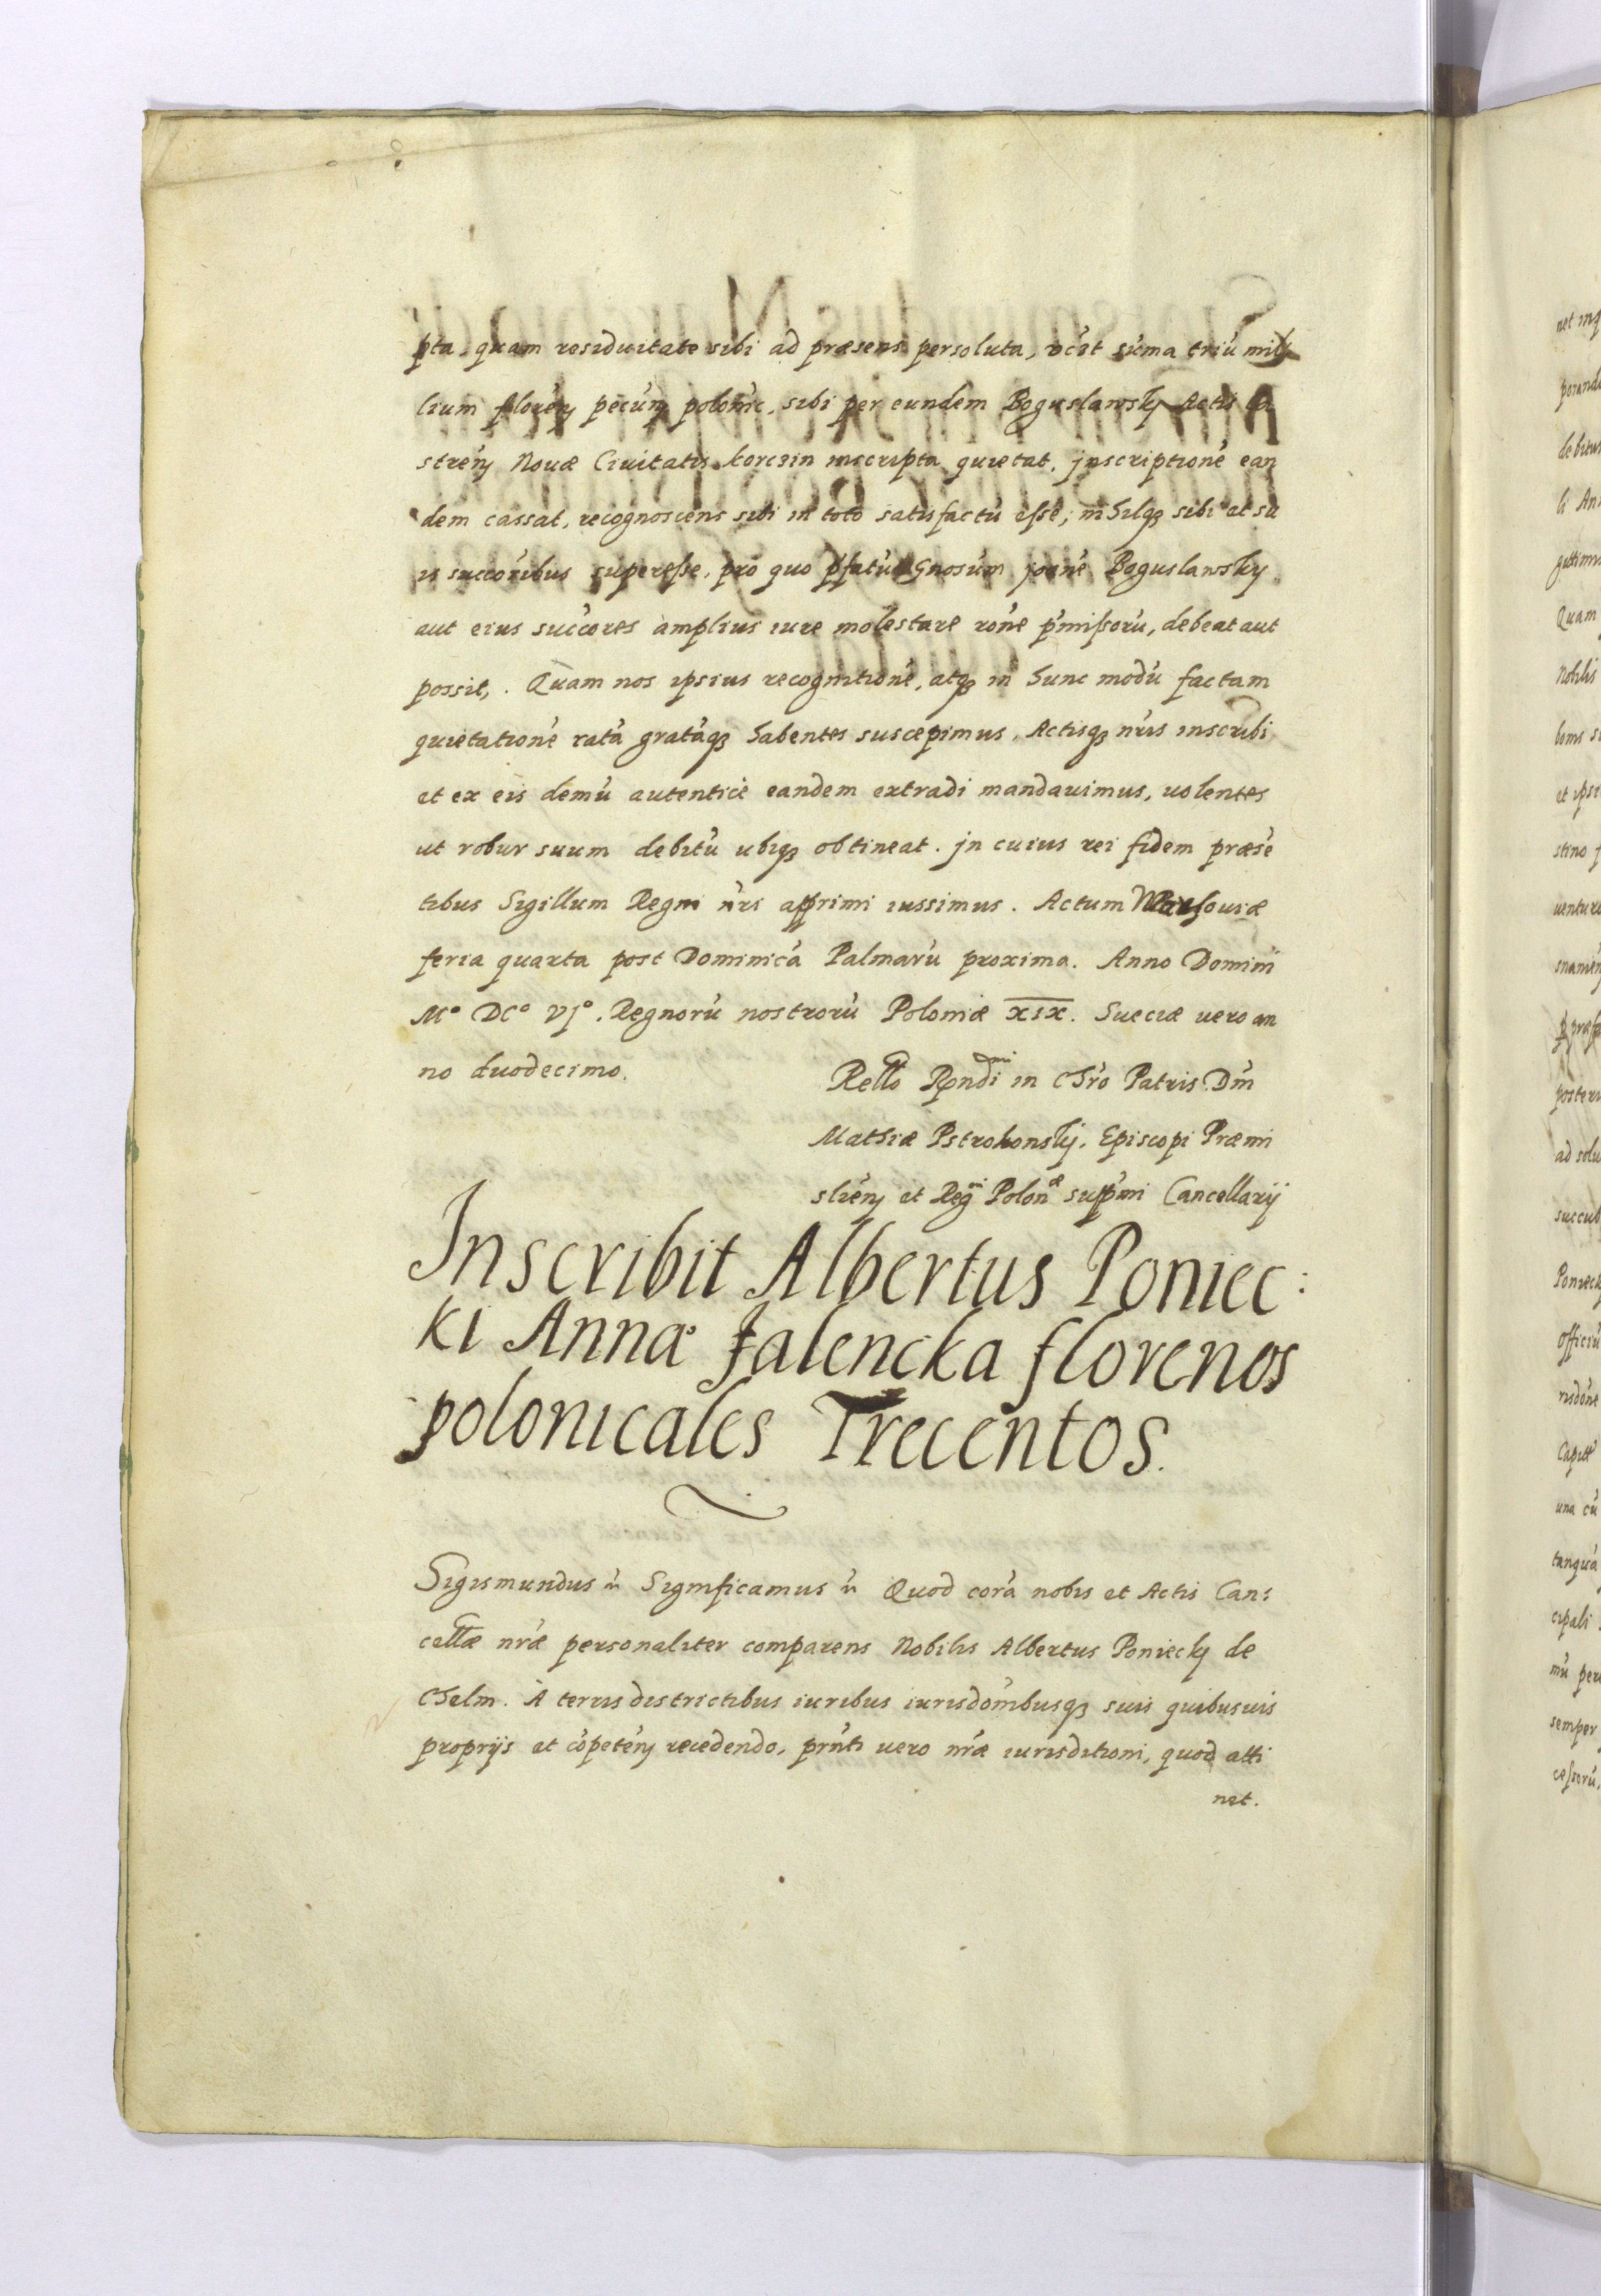 pta, quam residuitate sibi ad præsens persoluta, vc̃it sũma triũ mil
lium florẽn pecũn polonic, sibi per eundem Boguslawsky Actis Ca
strẽn Nouæ Ciuitatis Korczin inscripta quietat, jnscriptionẽ ean
dem cassat, recognoscens sibi in toto satisfactũ eße, nihilq3 sibi et su
is succoribus supereße, pro quo p̃fatũ Gnosũm Joañe Boguslawsky
aut eius succores amplius iure molestare roñe p̃mißorũ, debeat aut
possit. Quam nos ipsius recognitionẽ, atq3 in hunc modũ factam
quietationẽ ratã gratãq3 habentes suscepimus, Actisq3 nr̃is inscribi
et ex eis demũ autentice eandem extradi mandauimus, uolentes
ut robur suum debitũ ubiq3 obtineat. Jn cuius rei fidem præsẽ
tibus Sigillum Regni nr̃i apprimi iussimus. Actum Warsouiæ
feria quarta post Dominicã Palmarũ proxima. Anno Domini
Mº DCº VJº. Regnorũ nostrorũ Poloniæ XIX. Sueciæ uero an
no duodecimo.
Rello Rọndi mi in Chr̃o Patris Dñi
Mathiæ Pstrokonskj. Episcopi Præmi
sliẽn et Regii Polonæ supp̃mi Cancellarij
Inscribit Albertus Poniec:
ki Annæ Jalencka florenos
polonicales Trecentos.
Sigismundus ñ Significamus ñ Quod corã nobis et Actis Can:
cellæ nr̃æ personaliter comparens Nobilis Albertus Poniecky de
Chelm. A terris districtibus iuribus iurisdoñibusq3 suis quibusuis
proprijs et cõpetẽn recedendo, prñti uero nr̃æ iurisditioni, quod atti
net.